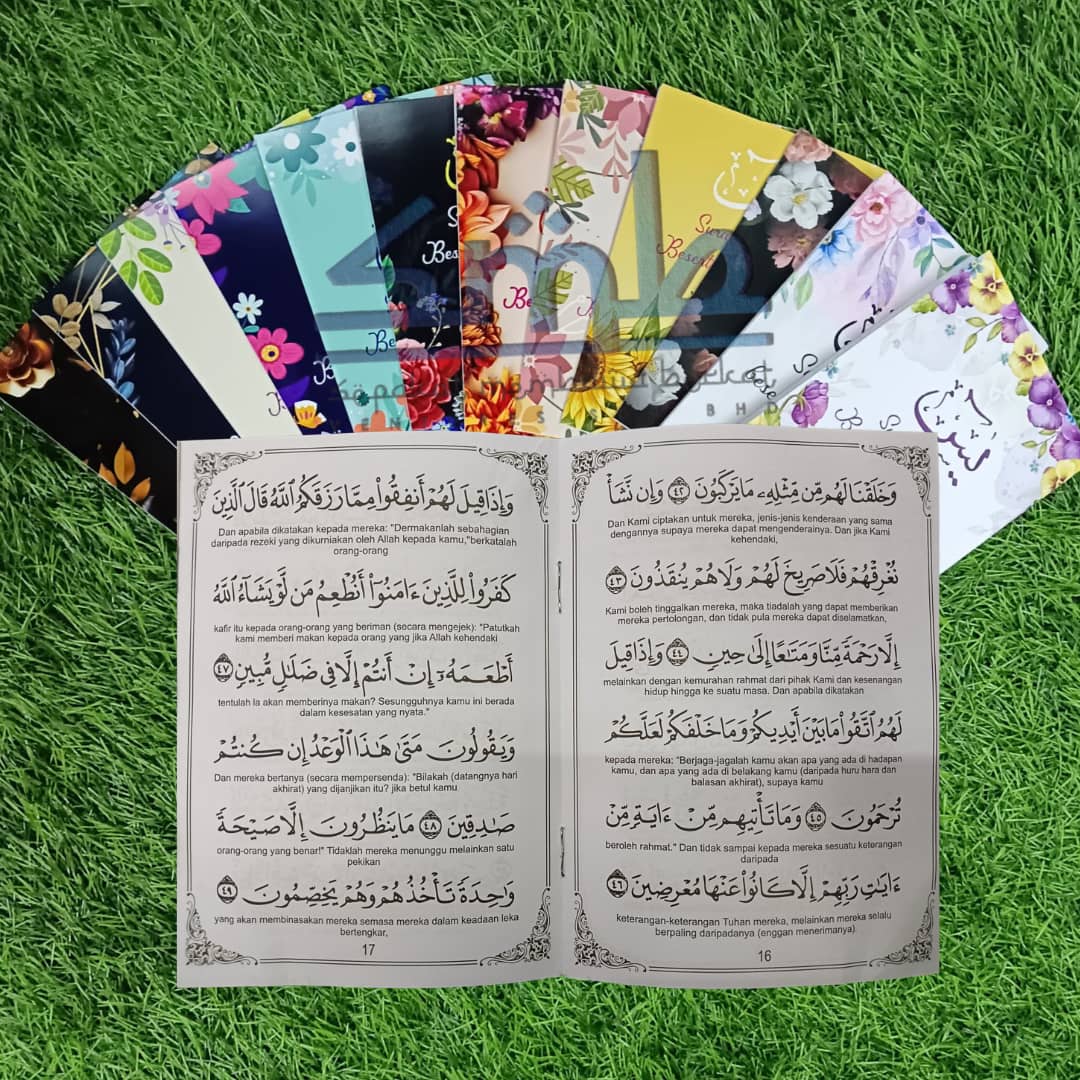 يس
وَخَلَقْنَا لَهُم مِّن مِّثْلِهِۦ مَا يَرْكَبُونَ ٤٢ وَإِن نَّشَأْ
Dan Kami ciptakan untuk mereka, jenis-jenis kenderaan yang sama
dengannya supaya mereka dapat mengenderainya. Dan jika Kami
kehendaki,
نُغْرِقْهُمْ فَلَا صَرِيخَ لَهُمْ وَلَا هُمْ يُنقَذُونَ ٤٣
Kami boleh tinggalkan mereka, maka tiadalah yang dapat memberikan
mereka pertolongan, dan tidak pula mereka dapat diselamatkan,
إِلَّا رَحْمَةً مِّنَّا وَمَتَٰعًا إِلَىٰ حِينٍ ٤٤ وَإِذَا قِيلَ
melainkan dengan kemurahan rahmat dari pihak Kami dan kesenangan
hidup hingga ke suatu masa. Dan apabila dikatakan
لَهُمُ ٱتَّقُوا۟ مَا بَيْنَ أَيْدِيكُمْ وَمَا خَلْفَكُمْ لَعَلَّكُمْ
kepada mereka: "Berjaga-jagalah kamu akan apa yang ada di hadapan
kamu, dan apa yang ada di belakang kamu (daripada huru hara dan
balasan akhirat), supaya kamu
تُرْحَمُونَ ٤٥ وَمَا تَأْتِيهِم مِّنْ ءَايَةٍ مِّنْ
beroleh rahmat." Dan tidak sampai kepada mereka sesuatu keterangan
daripada
ءَايَٰتِ رَبِّهِمْ إِلَّا كَانُوا۟ عَنْهَا مُعْرِضِينَ ٤٦
keterangan-keterangan Tuhan mereka, melainkan mereka selalu
berpaling daripadanya (enggan menerimanya).
16
وَإِذَا قِيلَ لَهُمْ أَنفِقُوا۟ مِمَّا رَزَقَكُمُ ٱللَّهُ قَالَ ٱلَّذِينَ
Dan apabila dikatakan kepada mereka: "Dermakanlah sebahagian
daripada rezeki yang dikurniakan oleh Allah kepada kamu,"berkatalah
orang-orang
كَفَرُوا۟ لِلَّذِينَ ءَامَنُوٓا۟ أَنُطْعِمُ مَن لَّوْ يَشَآءُ ٱللَّهُ
kafir itu kepada orang-orang yang beriman (secara mengejek): "Patutkah
kami memberi makan kepada orang yang jika Allah kehendaki
أَطْعَمَهُۥٓ إِنْ أَنتُمْ إِلَّا فِى ضَلَٰلٍ مُّبِينٍ ٤٧
tentulah Ia akan memberinya makan? Sesungguhnya kamu ini berada
dalam kesesatan yang nyata."
وَيَقُولُونَ مَتَىٰ هَٰذَا ٱلْوَعْدُ إِن كُنتُمْ
Dan mereka bertanya (secara mempersenda): "Bilakah (datangnya hari
akhirat) yang dijanjikan itu? jika betul kamu
صَٰدِقِينَ ٤٨ مَا يَنظُرُونَ إِلَّا صَيْحَةً
orang-orang yang benar!" Tidaklah mereka menunggu melainkan satu
pekikan
وَٰحِدَةً تَأْخُذُهُمْ وَهُمْ يَخِصِّمُونَ ٤٩
yang akan membinasakan mereka semasa mereka dalam keadaan leka
bertengkar,
17